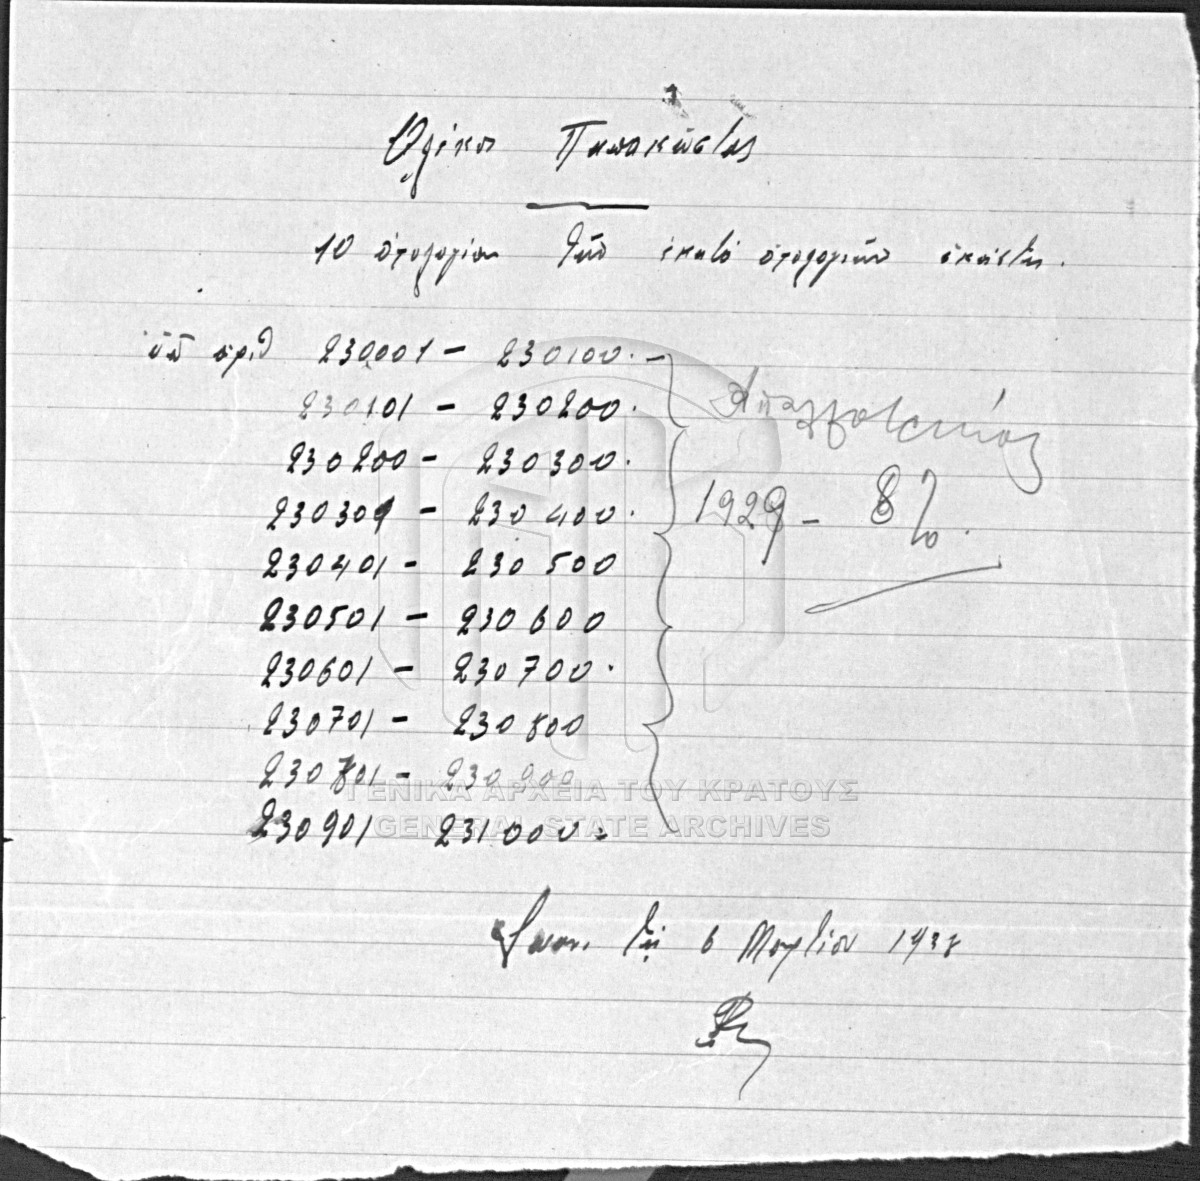 Παπακώστας
10 ὁμολογίαι τῶν ἑκατὸ ὁμολογιῶν ἑκάστη.
ὑπ ἀριθ 230001 - 230100.-
230101 - 230200.
230200 - 230300.
230301 - 230400.
230401 - 230500
230501 - 230600
230601 - 230700.
230701 - 230800
230801 - 230900
230901 231000.
1929 - 8%.
τῇ 6 Μαρτίου 1938
ΓΕΝΙΚΑ ΑΡΧΕΙΑ ΤΟΥ ΚΡΑΤΟΥΣ
GENERAL STATE ARCHIVES